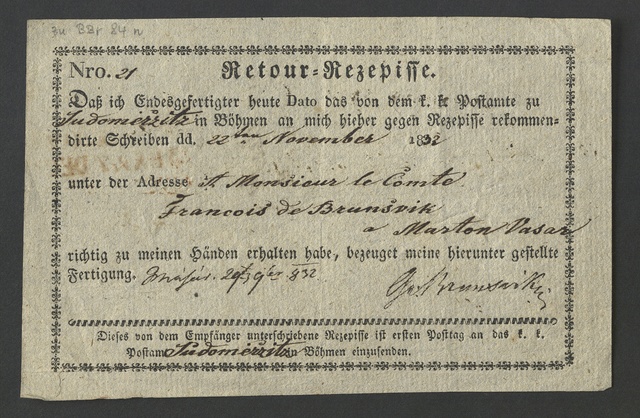 zu BBr 84 n
Nro. 21 Retour-Rezepisse.
Daß ich Endesgefertigter heute Dato das von dem k. k. Postamte zu
Sudomerzitz in Böhmen an mich hieher gegen Rezepisse rekommen-
dirte Schreiben dd. 22ten November 1832
unter der Adresse A Monsieur le Comte
Francois de Brunsvik
a Marton Vasar
richtig zu meinen Händen erhalten habe, bezeuget meine hierunter gestellte
Fertigung. 9ber 832
Brunsvik
Dieses von dem Empfänger unterschriebene Rezepisse ist ersten Posttag an das k. k.
Postamt Sudomerzitz in Böhmen einzusenden.